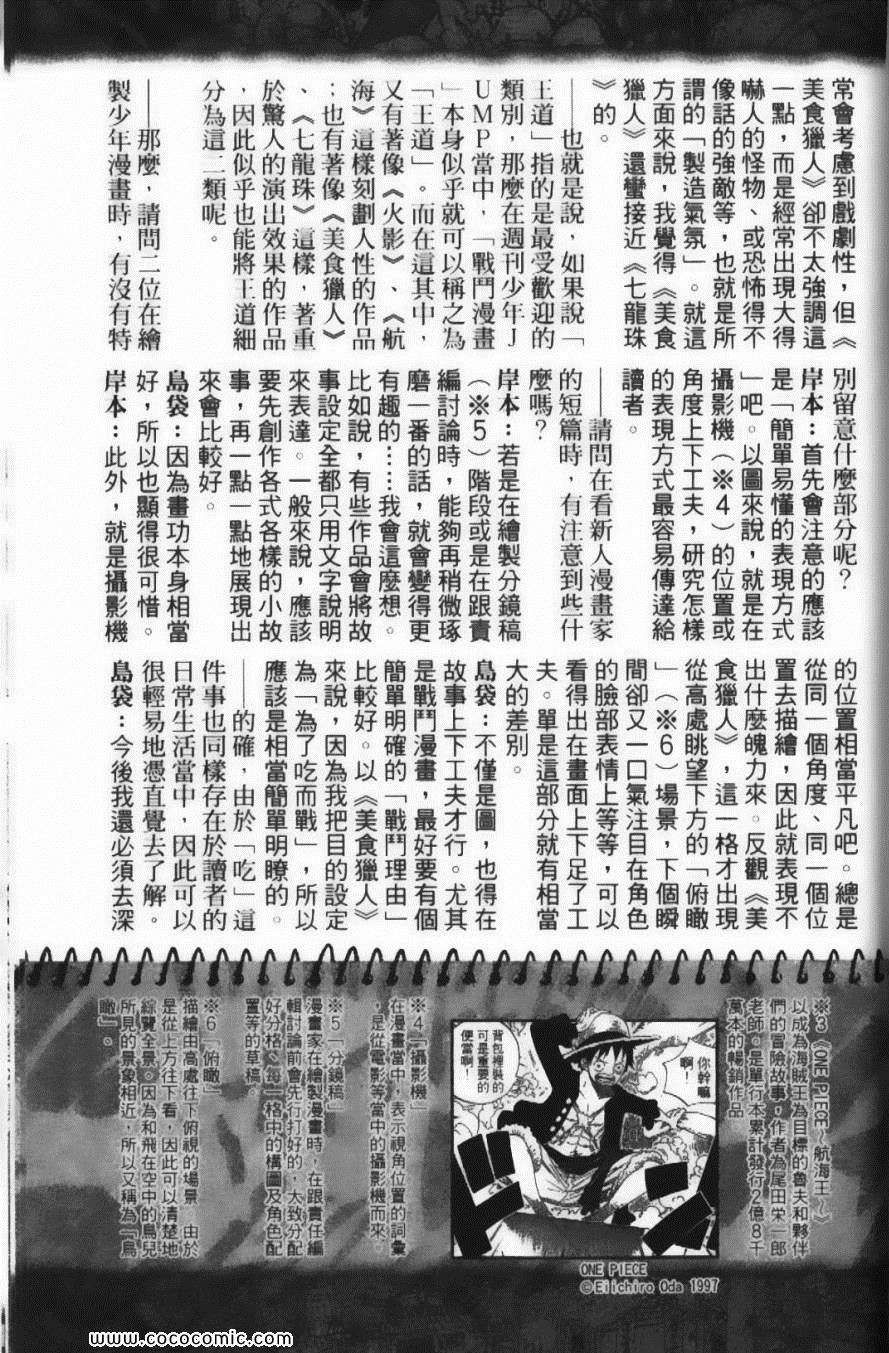 常會考慮到戲劇性，但《
美食獵人》卻不太強調這
一點，而是經常出現大得
嚇人的怪物、或恐怖得不
像話的強敵等，也就是所
謂的「製造氣氛」。就這
方面來說，我覺得《美食
獵人》還蠻接近《七龍珠
》的。
——也就是說，如果說「
王道」指的是最受歡迎的
類別，那麼在週刊少年J
UMP當中，「戰鬥漫畫
」本身似乎就可以稱之為
「王道」。而在這其中，
又有著像《火影》、《航
海》這樣刻劃人性的作品
；也有著像《美食獵人》
、《七龍珠》這樣，著重
於驚人的演出效果的作品
，因此似乎也能將王道細
分為這二類呢。
——那麼，請問二位在繪
製少年漫畫時，有沒有特
別留意什麼部分呢？
岸本：首先會注意的應該
是「簡單易懂的表現方式
」吧。以圖來說，就是在
攝影機（※4）的位置或
角度上下工夫，研究怎樣
的表現方式最容易傳達給
讀者。
——請問在看新人漫畫家
的短篇時，有注意到些什
麼嗎？
岸本：若是在繪製分鏡稿
（※5）階段或是在跟責
編討論時，能夠再稍微琢
磨一番的話，就會變得更
有趣的……我會這麼想。
比如說，有些作品會將故
事設定全都只用文字說明
來表達。一般來說，應該
要先創作各式各樣的小故
事，再一點一點地展現出
來會比較好。
島袋：因為畫功本身相當
好，所以也顯得很可惜。
岸本：此外，就是攝影機
的位置相當平凡吧。總是
從同一個角度、同一個位
置去描繪，因此就表現不
出什麼魄力來。反觀《美
食獵人》，這一格才出現
從高處眺望下方的「俯瞰
」（※6）場景，下個瞬
間卻又一口氣注目在角色
的臉部表情上等等，可以
看得出在畫面上下足了工
夫。單是這部分就有相當
大的差別。
島袋：不僅是圖，也得在
故事上下工夫才行。尤其
是戰鬥漫畫，最好要有個
簡單明確的「戰鬥理由」
比較好。以《美食獵人》
來說，因為我把目的設定
為「為了吃而戰」，所以
應該是相當簡單明瞭的。
——的確，由於「吃」這
件事也同樣存在於讀者的
日常生活當中，因此可以
很輕易地憑直覺去了解。
島袋：今後我還必須去深
※3《ONE PIECE～航海王～》
以成為海賊王為目標的魯夫和夥伴
們的冒險故事，作者為尾田栄一郎
老師。是單行本累計發行2億8千
萬本的暢銷作品。
你幹嘛
啊！
背包裡裝的
可是重要的
便當啊！
ONE PIECE
©Eiichiro Oda 1997
※4「攝影機」
在漫畫當中，表示視角位置的詞彙
，是從電影等當中的攝影機而來。
※5「分鏡稿」
漫畫家在繪製漫畫時，在跟責任編
輯討論前會先行打好的，大致分配
好分格、每一格中的構圖及角色配
置等的草稿。
※6「俯瞰」
描繪由高處往下俯視的場景，由於
是從上方往下看，因此可以清楚地
綜覽全景。因為和飛在空中的鳥兒
所見的景象相近，所以又稱為「鳥
瞰」。
http://www.cococomic.com/